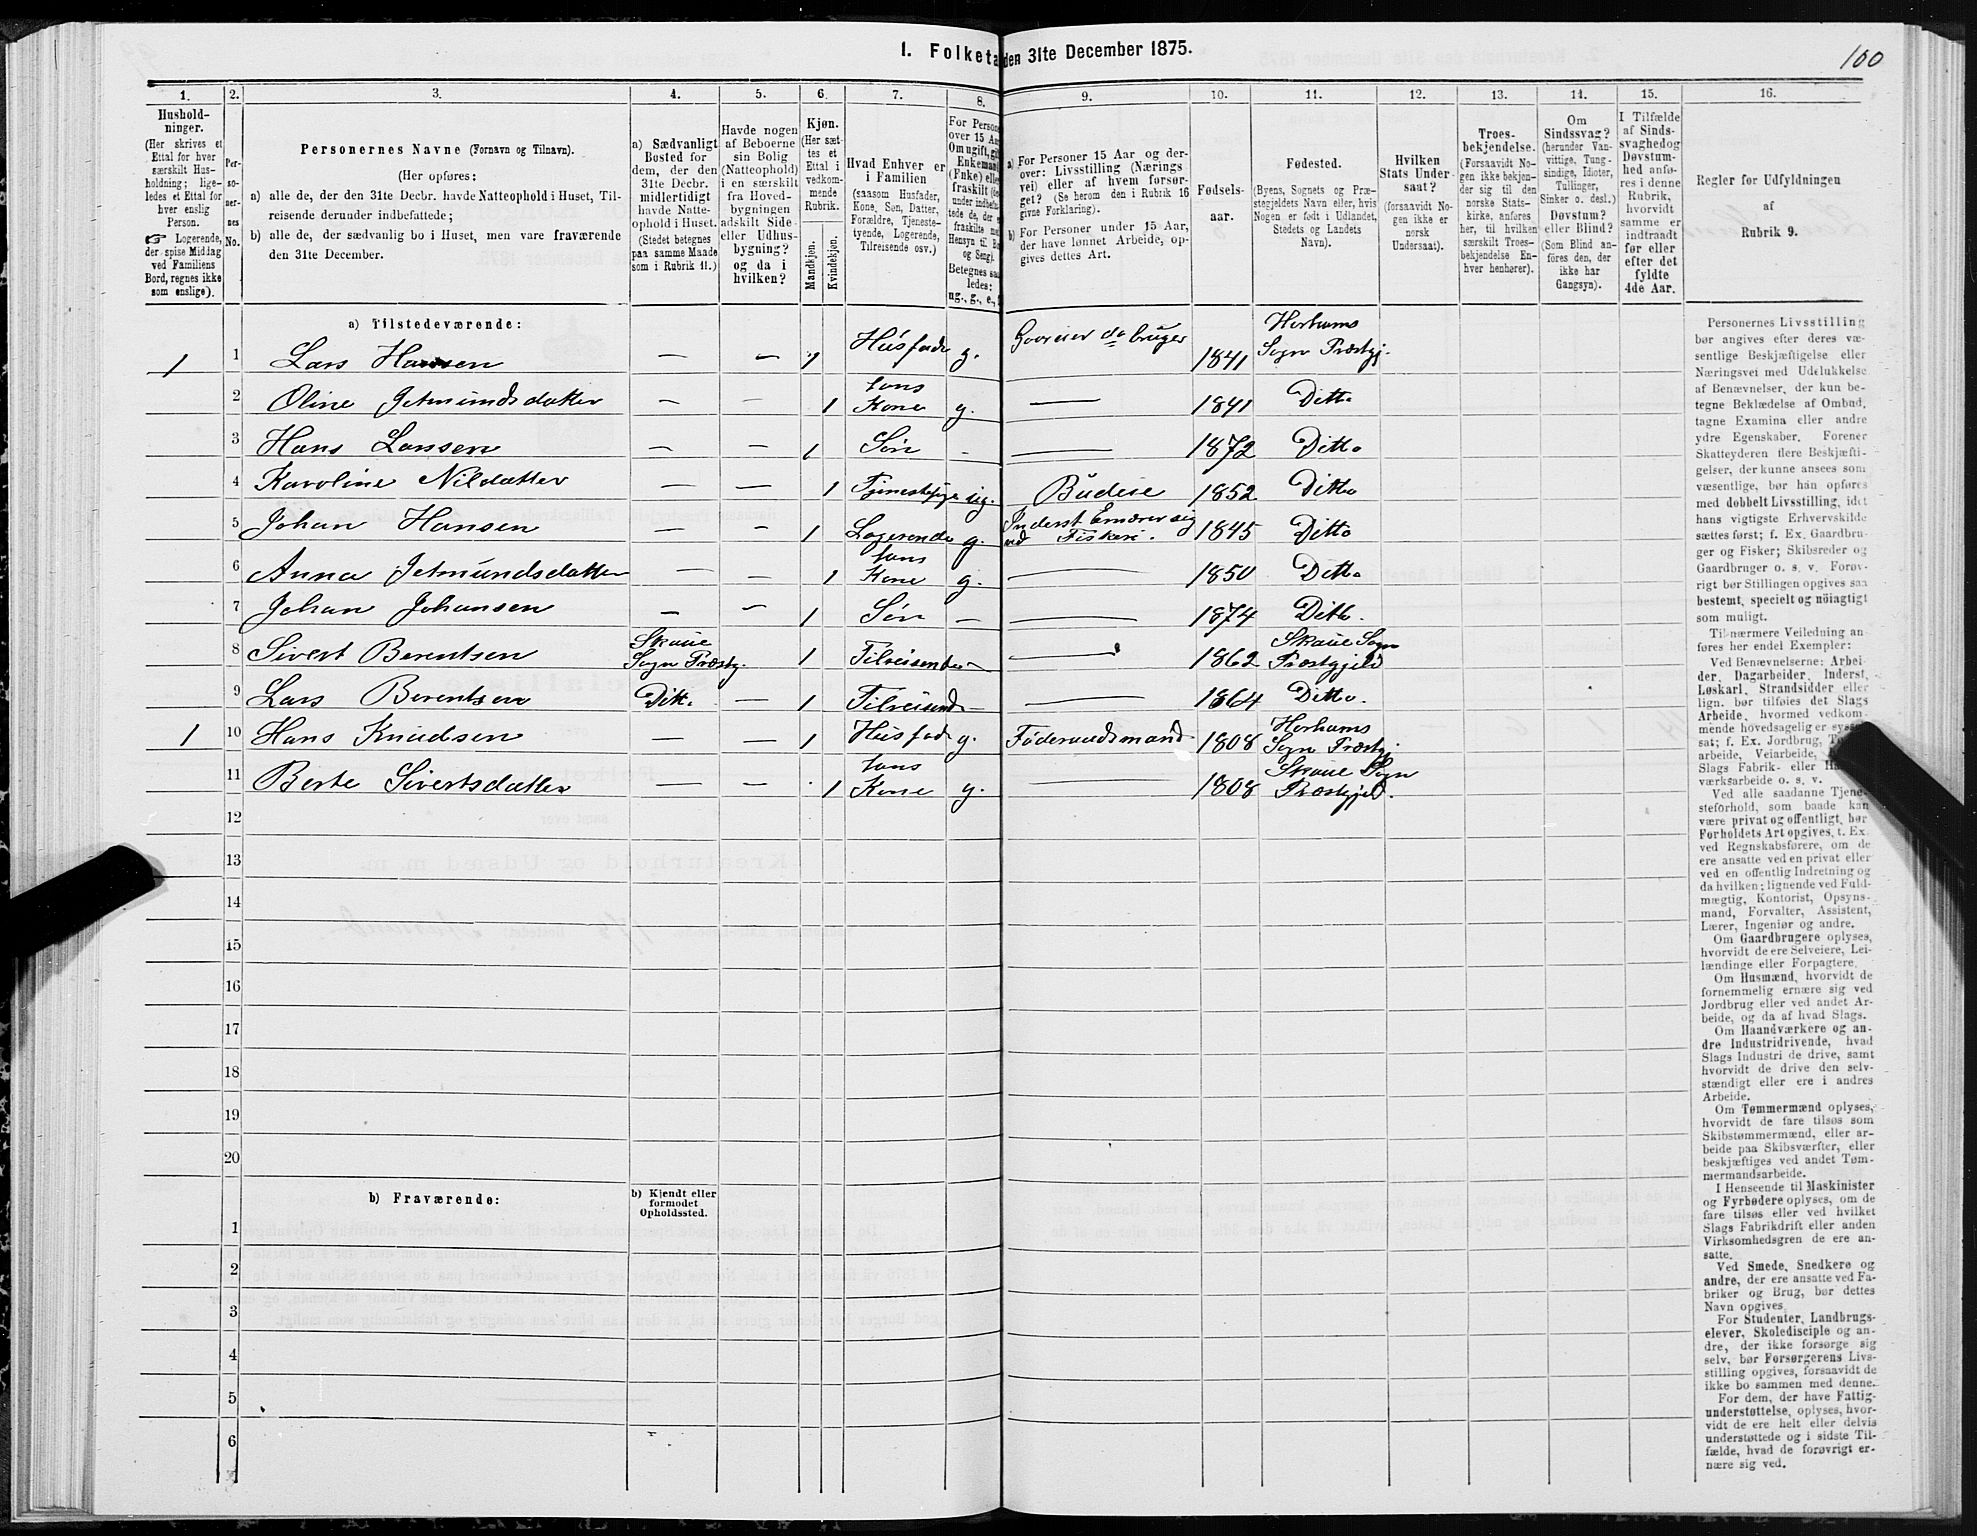 1. Folketæ
den 31te December 1875.
100
1.
2.
3.
4.
5.
6.
7.
8.
9.
10.
11.
12.
13.
14.
15.
16.
Hushold-
ninger.
(Her skrives et
Ettal for hver
særskilt Hus-
holdning; lige-
ledes et Ettal for
hver enslig
Person.
☞ Logerende,
der spise Middag
ved Familiens
Bord, regnes ikke
som enslige).
Per-
so-
ner-
nes
No.
Personernes Navne (Fornavn og Tilnavn).
(Her opføres:
a) alle de, der den 31te Decbr. havde Natteophold i Huset, Til-
reisende derunder indbefattede;
b) alle de, der sædvanlig bo i Huset, men vare fraværende
den 31te December.
a) Sædvanligt
Bosted for
dem, der den
31te Decbr.
midlertidigt
havde Natte-
ophold i Huset.
(Stedet betegnes
paa samme Maade
som i Rubrik 11.)
Havde nogen
af Beboerne
sin Bolig
(Natteophold)
i en særskilt
fra Hoved-
bygningen
adskilt Side-
eller Udhus-
bygning?
og da i
hvilken?
Kjøn.
(Her sæt-
tes et
Ettal i
vedkom-
mende
Rubrik.
Mandkjøn.
Kvindekjøn.
Hvad Enhver er
i Familien
(saasom Husfader,
Kone, Søn, Datter,
Forældre, Tjeneste-
tyende, Logerende,
Tilreisende osv.)
For Persone
over 15 Aa
Om ugift, gif
Enkemand
(Enke) elle
fraskilt (de
under indbefat-
tede de, der e
fraskilte me
Hensyn til Bo
og Seng).
Betegnes saa
ledes:
ug., g., e.,
a) For Personer 15 Aar og der-
over: Livsstilling (Nærings-
vei) eller af hvem forsør-
get? (Se herom den i Rubrik 16
givne Forklaring).
b) For Personer under 15 Aar,
der have lønnet Arbeide, op-
gives dettes Art.
Fødsels-
aar.
Fødested.
(Byens, Sognets og Præ-
stegjeldets Navn eller, hvis
Nogen er født i Udlandet,
Stedets og Landets
Navn).
Hvilken
Stats Under-
saat?
(forsaavidt No-
gen ikke er
norsk
Undersaat).
Troes-
bekjendelse.
(Forsaavidt No-
gen ikke bekjen-
der sig til den
norske Stats-
kirke, anføres
her, til hvilken
særskilt Troes-
bekjendelse En-
hver henhører).
Om
Sindssvag?
(herunder Van-
vittige, Tung-
sindige, Idioter,
Tullinger,
Sinker o. desl.)
Døvstum?
eller Blind?
(Som Blind an-
føres den, der
ikke har
Gangsyn).
I Tilfælde
af Sinds-
svaghed og
Døvstum-
hed anfø-
res i denne
Rubrik,
hvorvidt
samme er
indtraadt
før eller
efter det
fyldte
4de Aar.
Regler for Udfyldningen
af
Rubrik 9.
a) Tilstedeværende:
1 1 Lars Hansen — — 1 Husfade g. Gaareier do bruger 1841 Herhams Sogn Præstgj.
2 Oline Jetmundsdatter — — 1 hans Kone g. — 1841 Ditto
3 Hans Larssen — — 1 Søn - — 1872 Ditto
4 Karoline Nilsdatter 1 Tjenestepige ug. Budeie 1852 Ditto
5 Johan Hansen — — 1 Logerende g. Inderst Ernærer sig ved Fiskeri. 1845 Ditto
6 Anna Jetmundsdatter — — 1 hans Kone g. — 1850 Ditto
7 Johan Johansen — — 1 Søn — — 1874 Ditto.
8 Sivert Berentsen Skaue Sogn Præstg. 1 Tilreisende — — 1862 Skaue Sogn Præstgjeld
9 Lars Berentsen Ditto — 1 Tilreisende — — 1864 Ditto.
1 10 Hans Knudsen — — 1 Husfad g. Föderaadsmand 1808 Herhams Sogn Præstgj.
11 Berte Sivertsdatter — — 1 hans Kone g. — 1808 Skaue Sogn Præstgjeld.
12
13
14
15
16
17
18
19
20
b) Fraværende:
b) Kjendt eller
formodet
Opholdssted.
1
2
3
4
5
6
Personernes Livsstilling
bør angives efter deres væ-
sentlige Beskjæftigelse eller
Næringsvei med Udelukkelse
af Benævnelser, der kun be-
tegne Beklædelse af Ombud,
tagne Examina eller andre
ydre Egenskaber. Forener
Skatteyderen flere Beskjæfti-
gelser, der kunne ansees som
væsentlige, bør han opføres
med dobbelt Livsstilling, idet
hans vigtigste Erhvervskilde
sættes først; f. Ex. Gaardbru-
ger og Fisker; Skibsreder og
Gaardbruger o. s. v. Forøv-
rigt bør Stillingen opgives saa
bestemt, specielt og nöiagtigt
som muligt.
Til nærmere Veiledning an-
føres her endel Exempler:
Ved Benævnelserne: Arbei-
der, Dagarbeider, Inderst,
Løskarl, Strandsidder eller
lign. bør tilføies det Slags
Arbeide, hvormed vedkom-
mende hovedsagelig er syssel-
sat; f. Ex. Jordbrug,
arbeide, Veiarbeide,
Slags Fabrik- eller
værksarbeide o. s. v.
Ved alle saadanne Tjene-
steforhold, som baade kan
være privat og offentligt, bør
Forholdets Art opgives, t. Ex.
ved Regnskabsførere, om de
ere ansatte ved en privat eller
ved en offentlig Indretning og
da hvilken; lignende ved Fuld-
mægtig, Kontorist, Opsyns-
mand, Forvalter, Assistent,
Lærer, Ingeniør og andre.
Om Gaardbrugere oplyses,
hvorvidt de ere Selveiere, Lei-
lændinge eller Forpagtere.
Om Husmænd, hvorvidt de
fornemmelig ernære sig ved
Jordbrug eller ved andet Ar-
beide, og da af hvad Slags.
Om Haandværkere og an-
dre Industridrivende, hvad
Slags Industri de drive, samt
hvorvidt de drive den selv-
stændigt eller ere i andres
Arbeide.
Om Tømmermænd oplyses,
hvorvidt de fare tilsøs som
Skibstømmermænd, eller ar-
beide paa Skibsværfter, eller
beskjæftiges ved andet Tøm-
mermandsarbeide.
I Henseende til Maskinister
og Fyrbødere oplyses, om de
fare tilsøs eller ved hvilket
Slags Fabrikdrift eller anden
Virksomhedsgren de ere an-
satte.
Ved Smede, Snedkere og
andre, der ere ansatte ved Fa-
briker og Brug, bør dettes
Navn opgives.
For Studenter, Landbrugs-
elever, Skoledisciple og an-
dre, der ikke forsørge sig
selv, bør Forsørgerens Livs-
stilling opgives, forsaavidt de
ikke bo sammen med denne.
For dem, der have Fattig-
understøttelse, oplyses, hvor-
vidt de ere helt eller delvis
understøttede og i sidste Til-
fælde, hvad de forøvrigt er-
nære sig ved.